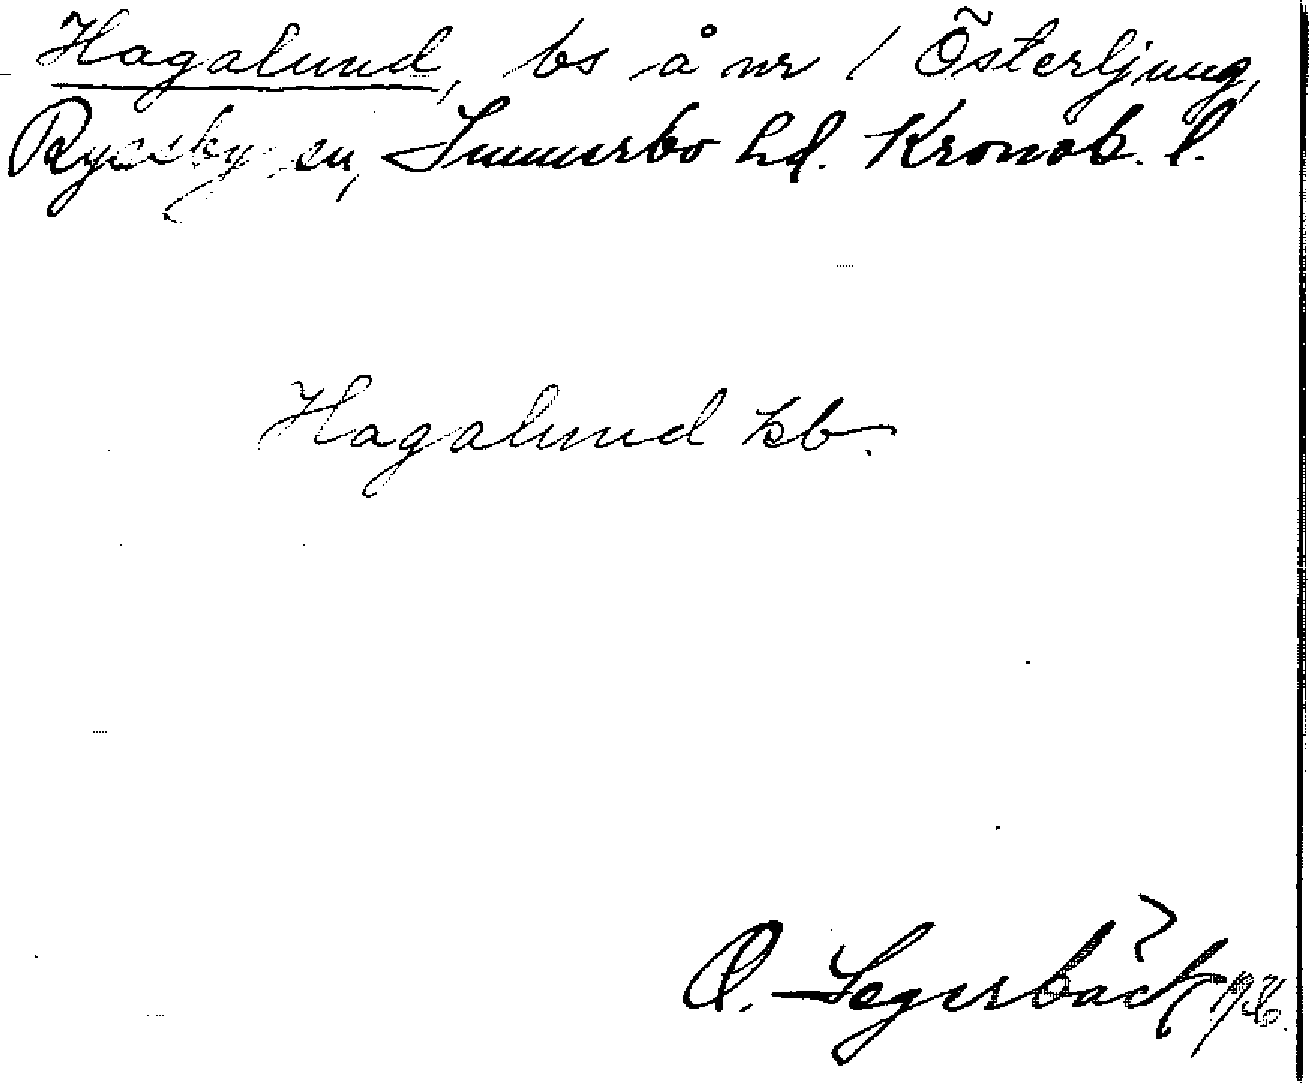 Hagalund, bs å nr 1 Österljung,
Ryssby sn, Sunnerbo hd. Kronob. l.
Hagalund kb.
O. Segerbäck